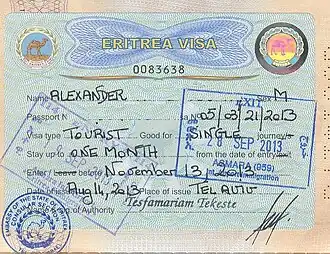 ERITREA VISA
0083638
Name ALEXANDER Sex M
Passport N sa No 05/08/21/2013
Visa type TOURIST Good for SINGLE journey/s
Stay up to ONE MONTH from the date of entry
Enter / Leave before November 13, 2013
Date of issue Aug 14, 2013 Place of issue TEL AVIV
of Authority Tesfamariam Tekeste
EXIT
28 SEP 2013
ASMARA (959)
Immigration
EMBASSY OF THE STATE OF ERITREA
CONSULAR SECTION